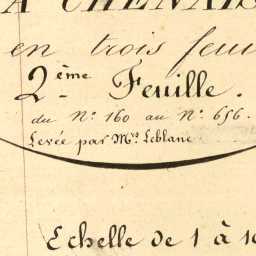 A CHENAIS
en trois feui
2ème Feuille.
du N° 160 au N° 656.
Levée par Mrs Leblanc
Echelle de 1 à 1